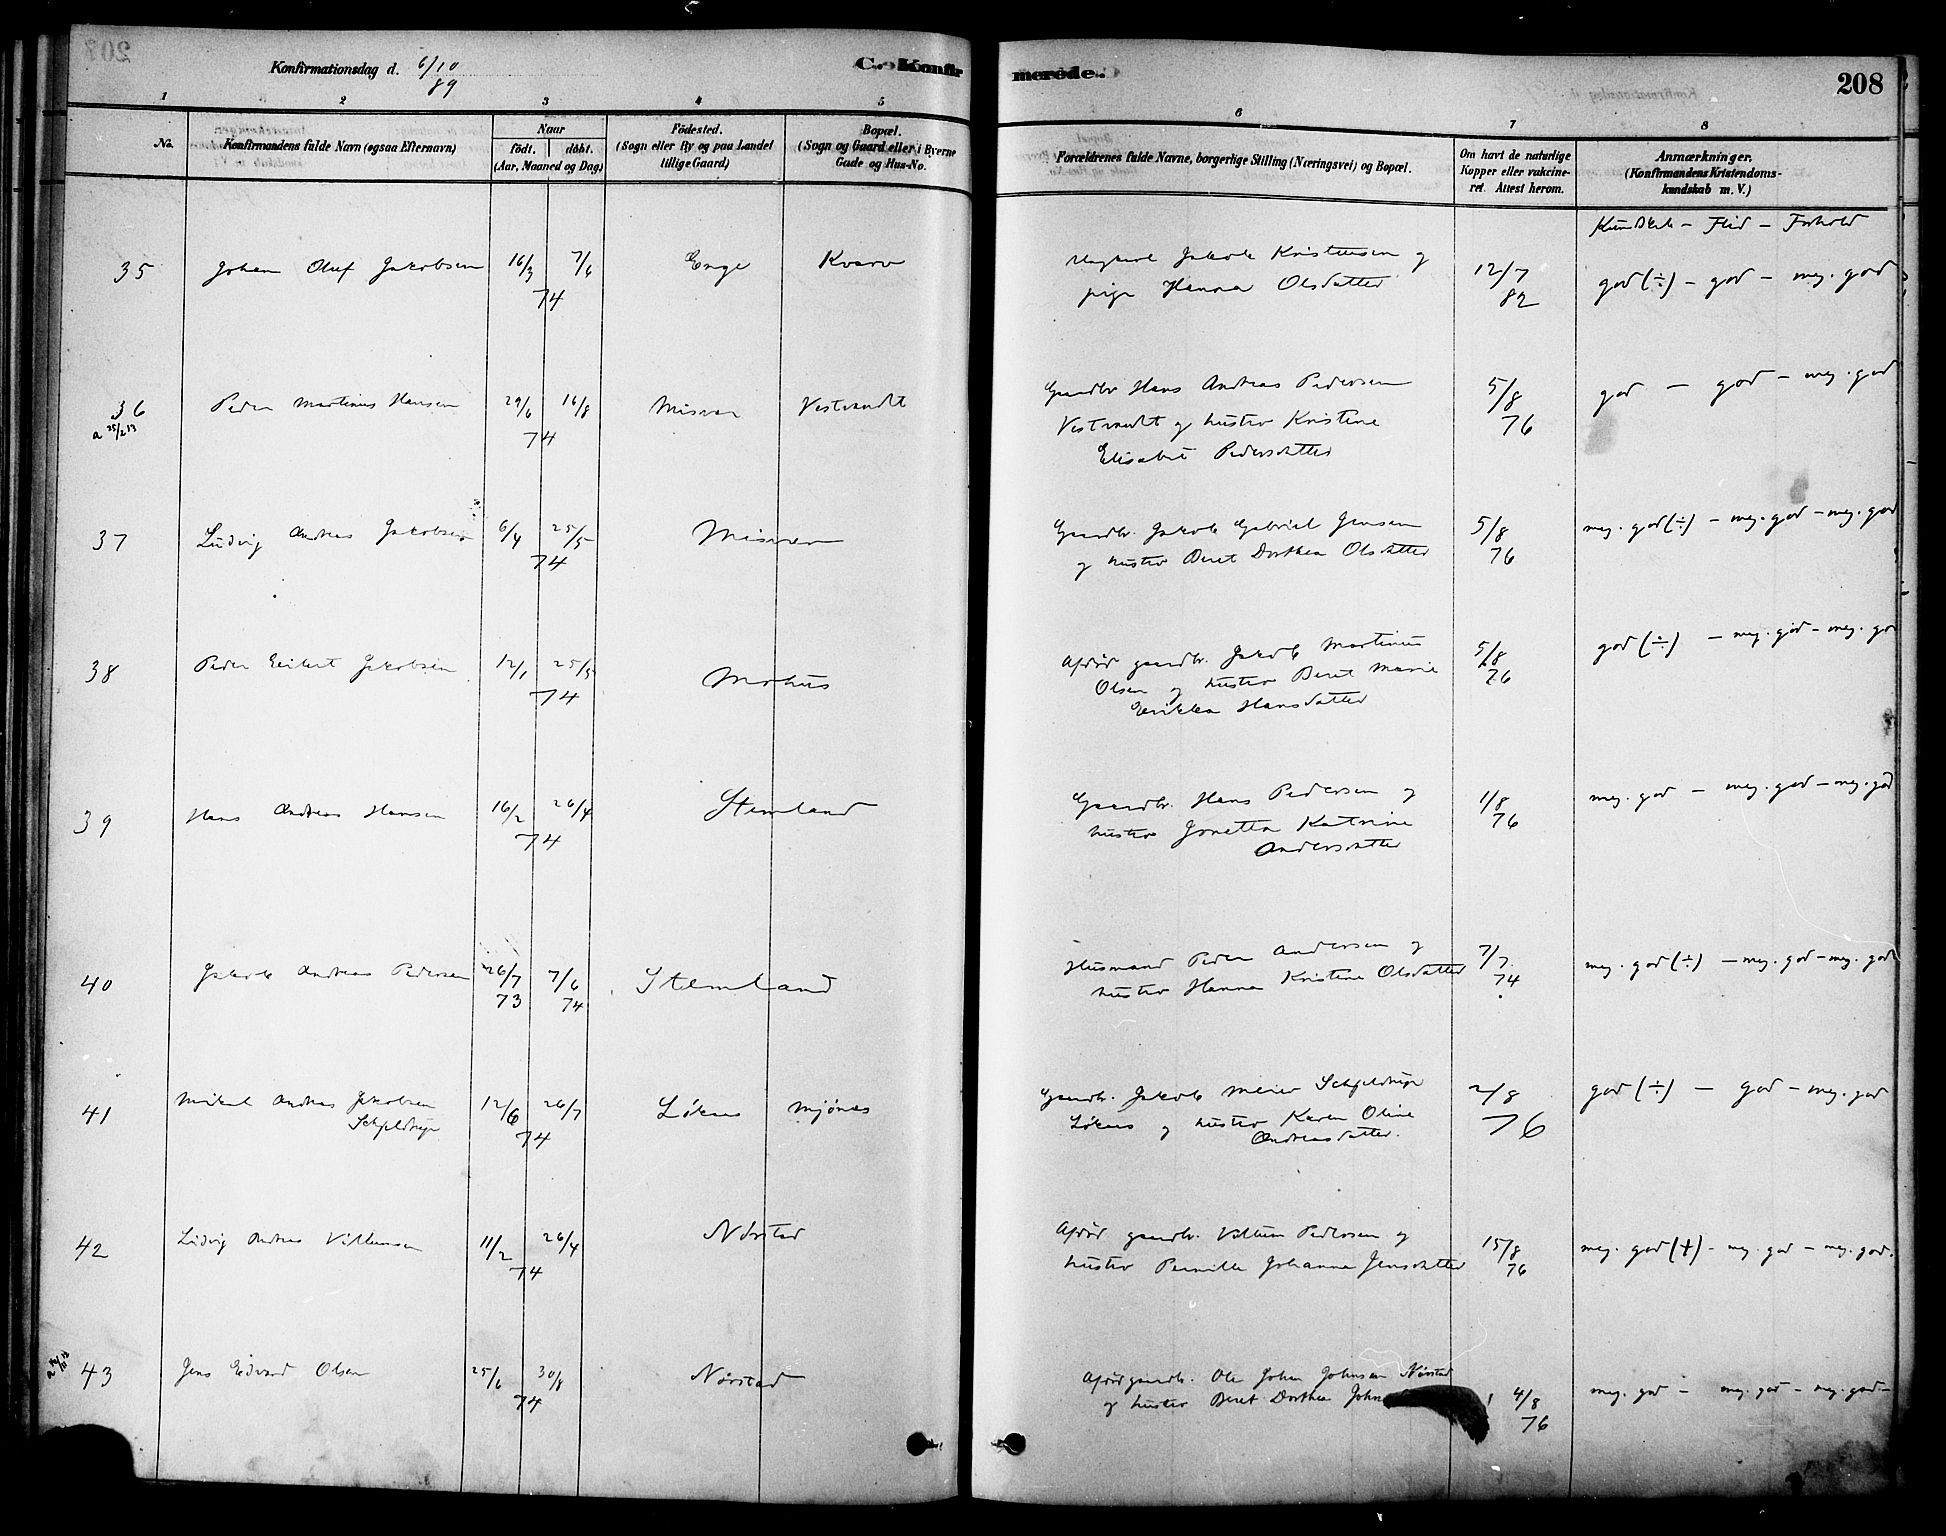 Konfirmationsdag d. 6/10 89
C. Konfir
merede.
208
1 2 3 4 5 6 7 8
No.
Konfirmandens fulde Navn (ogsaa Efternavn)
Naar
født. døbt.
(Aar, Maaned og Dag)
Fødested.
(Sogn eller By og paa Landet
tillige Gaard)
Bopæl.
(Sogn og Gaard eller i Byerne
Gade og Hus-No.
Forældrenes fulde Navne, borgerlige Stilling (Næringsvei) og Bopæl.
Om havt de naturlige
Kopper eller vakcine-
ret. Attest herom.
Anmærkninger.
(Konfirmandens Kristendoms-
kundskab m. V.)
Kundskab - Flid - Forhold
35 Johan Oluf Jakobsen 16/3 7/6 74 Enge Kvarv
Ungkarl Jakob Kristensen og
pige Hanna Olsdatter
12/7 82
god (÷) - god - meg. god
36 Peder Martinus Hansen 29/6 16/8 74 Misvær Vestvandt
a 25/2 13
Gaardbr Hans Andreas Pedersen
Vestvandt og hustro Kristine
Elisabet Pedersdatter
5/8 76
god - god - meg. god
37 Ludvig Andreas Jakobsen 6/4 25/5 74 Misvær
Gaardbr. Jakob Gabriel Jensen
og hustro Beret Dorthea Olsdatter
5/8 76
meg. god (÷) - meg. god - meg. god
38 Peder Jakobsen 12/1 25/5 74 Mohus
Afdød gaardbr. Jakob Martinus
Olsen og hustro Beret Marie
Erikka Hansdatter
5/8 76
god (÷) - meg. god - meg. go
39 Hans Andreas Hansen 16/2 26/4 74 Stemland
Gaardbr. Hans Pedersen og
hustro Jonetta Katrine
Andersdatter
1/8 76
meg. god - meg. god - meg. god
40 Jakob Andreas Pedersen 26/7 73 7/6 74 Stemland
Husmand Peder Andersen og
hustro Hanna Kristine Olsdatter
7/7 74
meg. god (÷) - meg. god - meg. god
41 Mikal Andreas Jakobsen
Schjeldrup 12/6 26/7 74 Løknes Mjønes
Gaardbr. Jakob Meier Schjeldrup
Løknes og hustro Karen Oline
Andreasdatter.
2/8 76
god (÷) - god - meg. god
42 Ludvig Andreas Villumsen 11/2 26/4 74 Nørstad
Afdød gaardbr. Villum Pedersen og
hustro Pernille Johanna Jensdatter
15/8 76
meg. god (+) - meg. god - meg. god.
43 Jens Edvard Olsen 25/6 30/8 74 Nørstad
Afdød gaardbr. Ole Johan Johnsen Nørstad
og hustro Beret Dorthea John
4/8 76
meg. god - meg. god - meg. god -